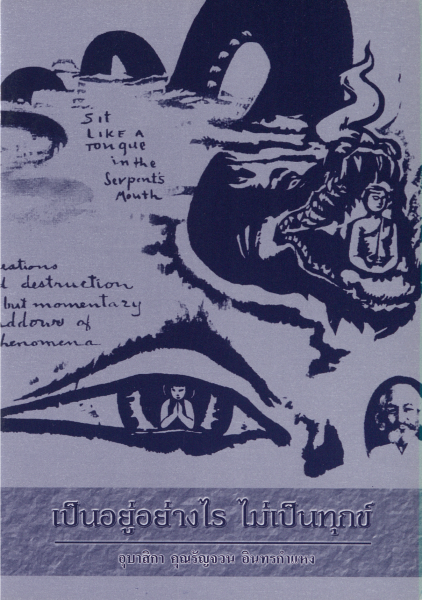 Sit
LIKE A
Tongue
in the
Serpent's
Mouth
eations
d destruction
but momentary
addows of
henomena
เป็นอยู่อย่างไร ไม่เป็นทุกข์
อุบาสิกา คุณรัญจวน อินทรกำแหง